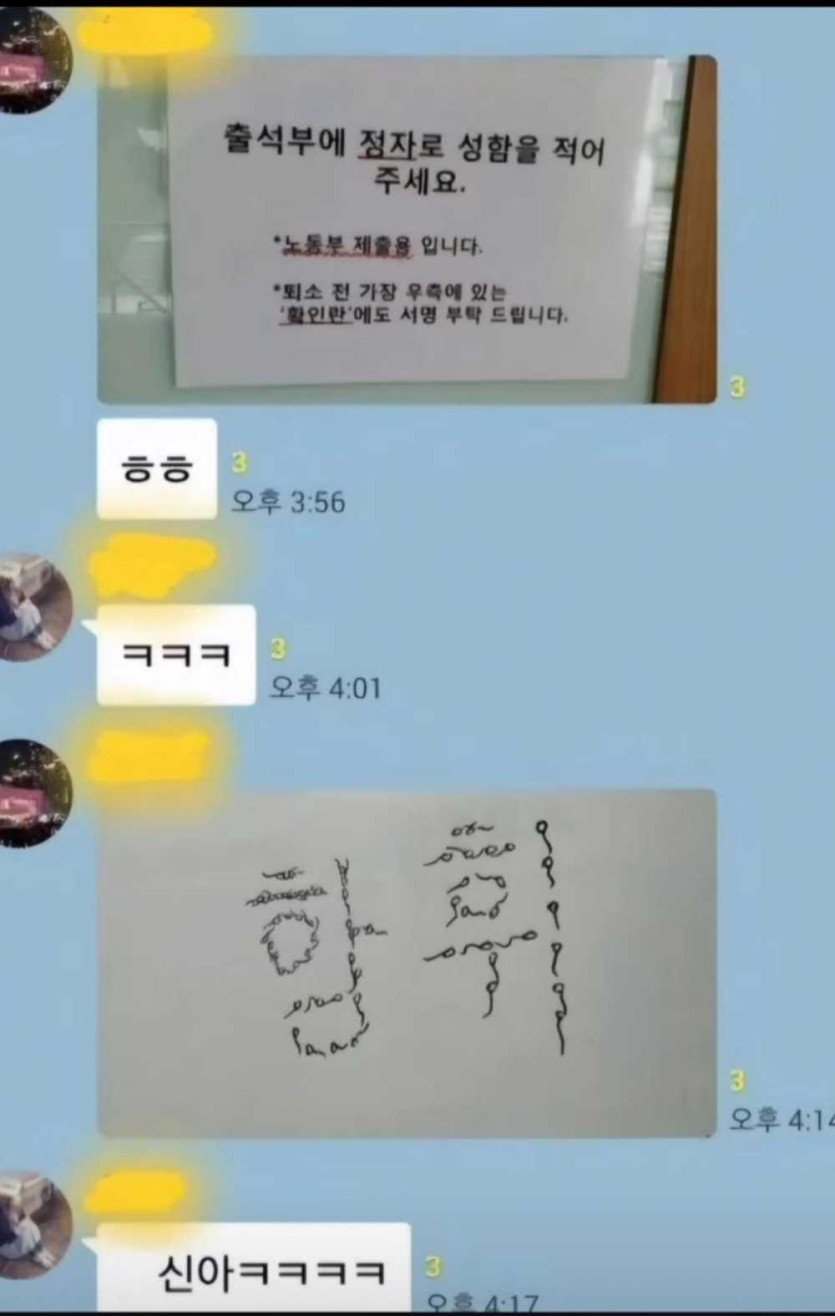 출석부에 정자로 성함을 적어
주세요.
*노동부 제출용 입니다.
*퇴소 전 가장 우측에 있는
'확인란'에도 서명 부탁 드립니다.
3
ㅎㅎ
3
오후 3:56
ㅋㅋㅋ
3
오후 4:01
3
오후 4:14
신아ㅋㅋㅋㅋ
3
오후 4:17